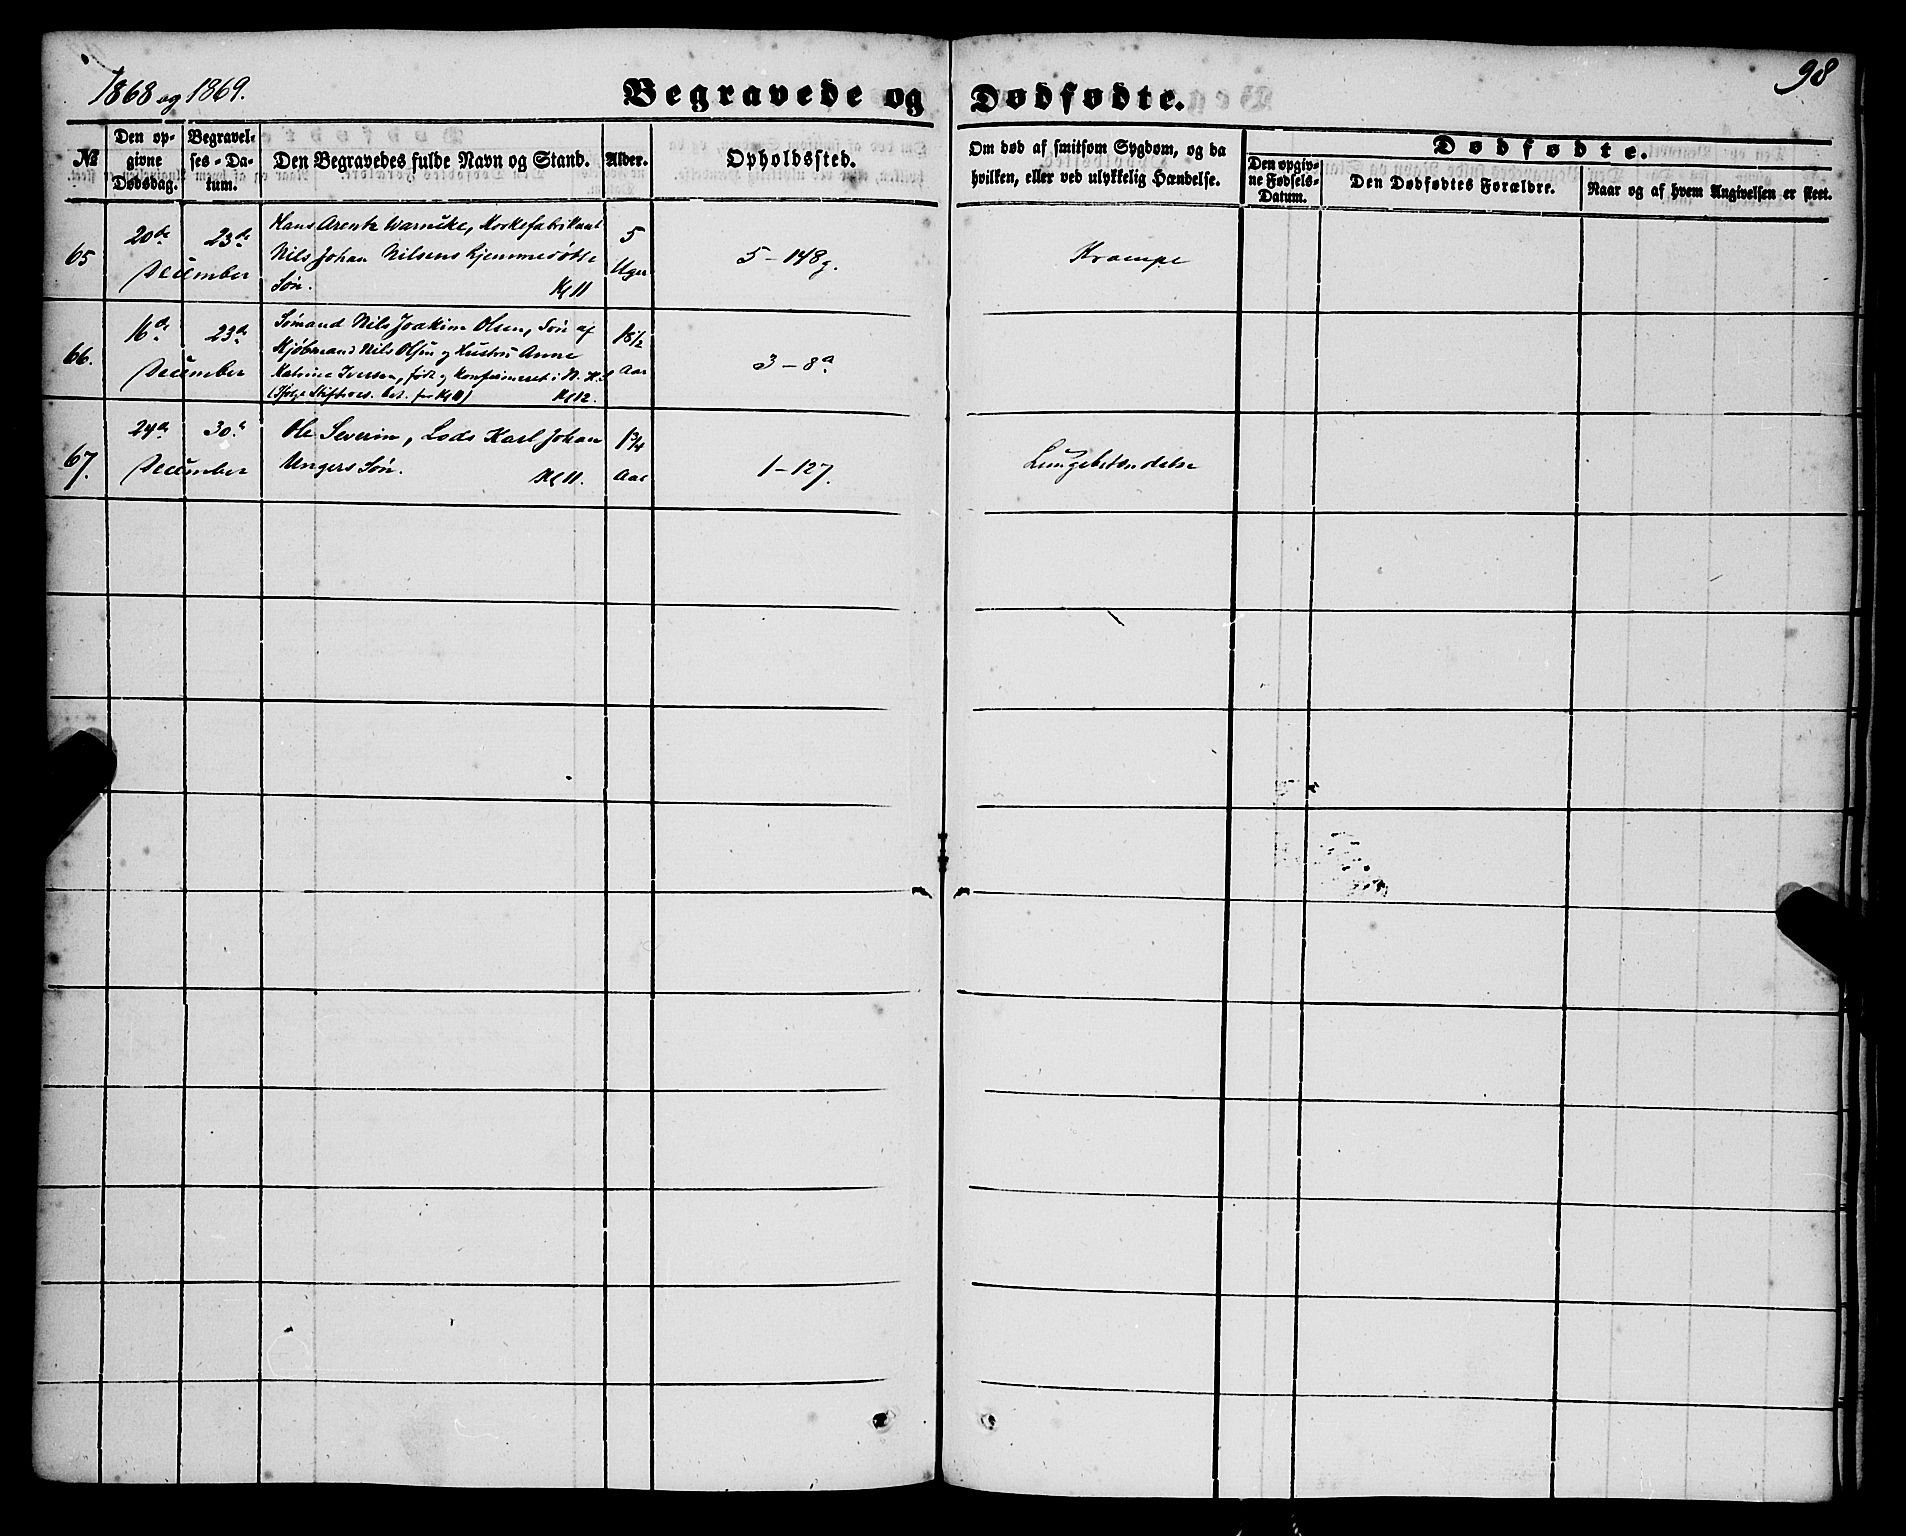 1868 og 1869.
Begravede og Dødfødte.
98
№
Den opgivne Dødsdag.
Begravelses-Datum.
Den Begravedes fulde Navn og Stand.
Alder.
Opholdssted.
Om død af smitsom Sygdom, og da hvilken, eller ved ulykkelig Hændelse.
Dødfødte.
Den opgivne Fødsels-Datum.
Den Dødfødtes Forældre.
Naar og af hvem Angivelsen er skeet.
65
20de
23de
December
Hans Arentz Warncke, Korkefabrikant
Nils Johan Nilsens hjemmedøbte
Søn. Kl 11
5
Uger
5-148g.
Krampe
66.
16de
23de
December
Sømand Nils Joakim Olsen, Søn af
Kjøbmand Nils Olsen og Hustru Anne
Katrine Iversen, født og konfirmeret i N. K.
Kl 12.
18 1/2
Aar
3-8a
67.
24de
30te
December
Ole Severin, Lods Karl Johan
Ungers Søn. Kl 11.
1 3/4
Aar
1-127.
Lungebetændelse